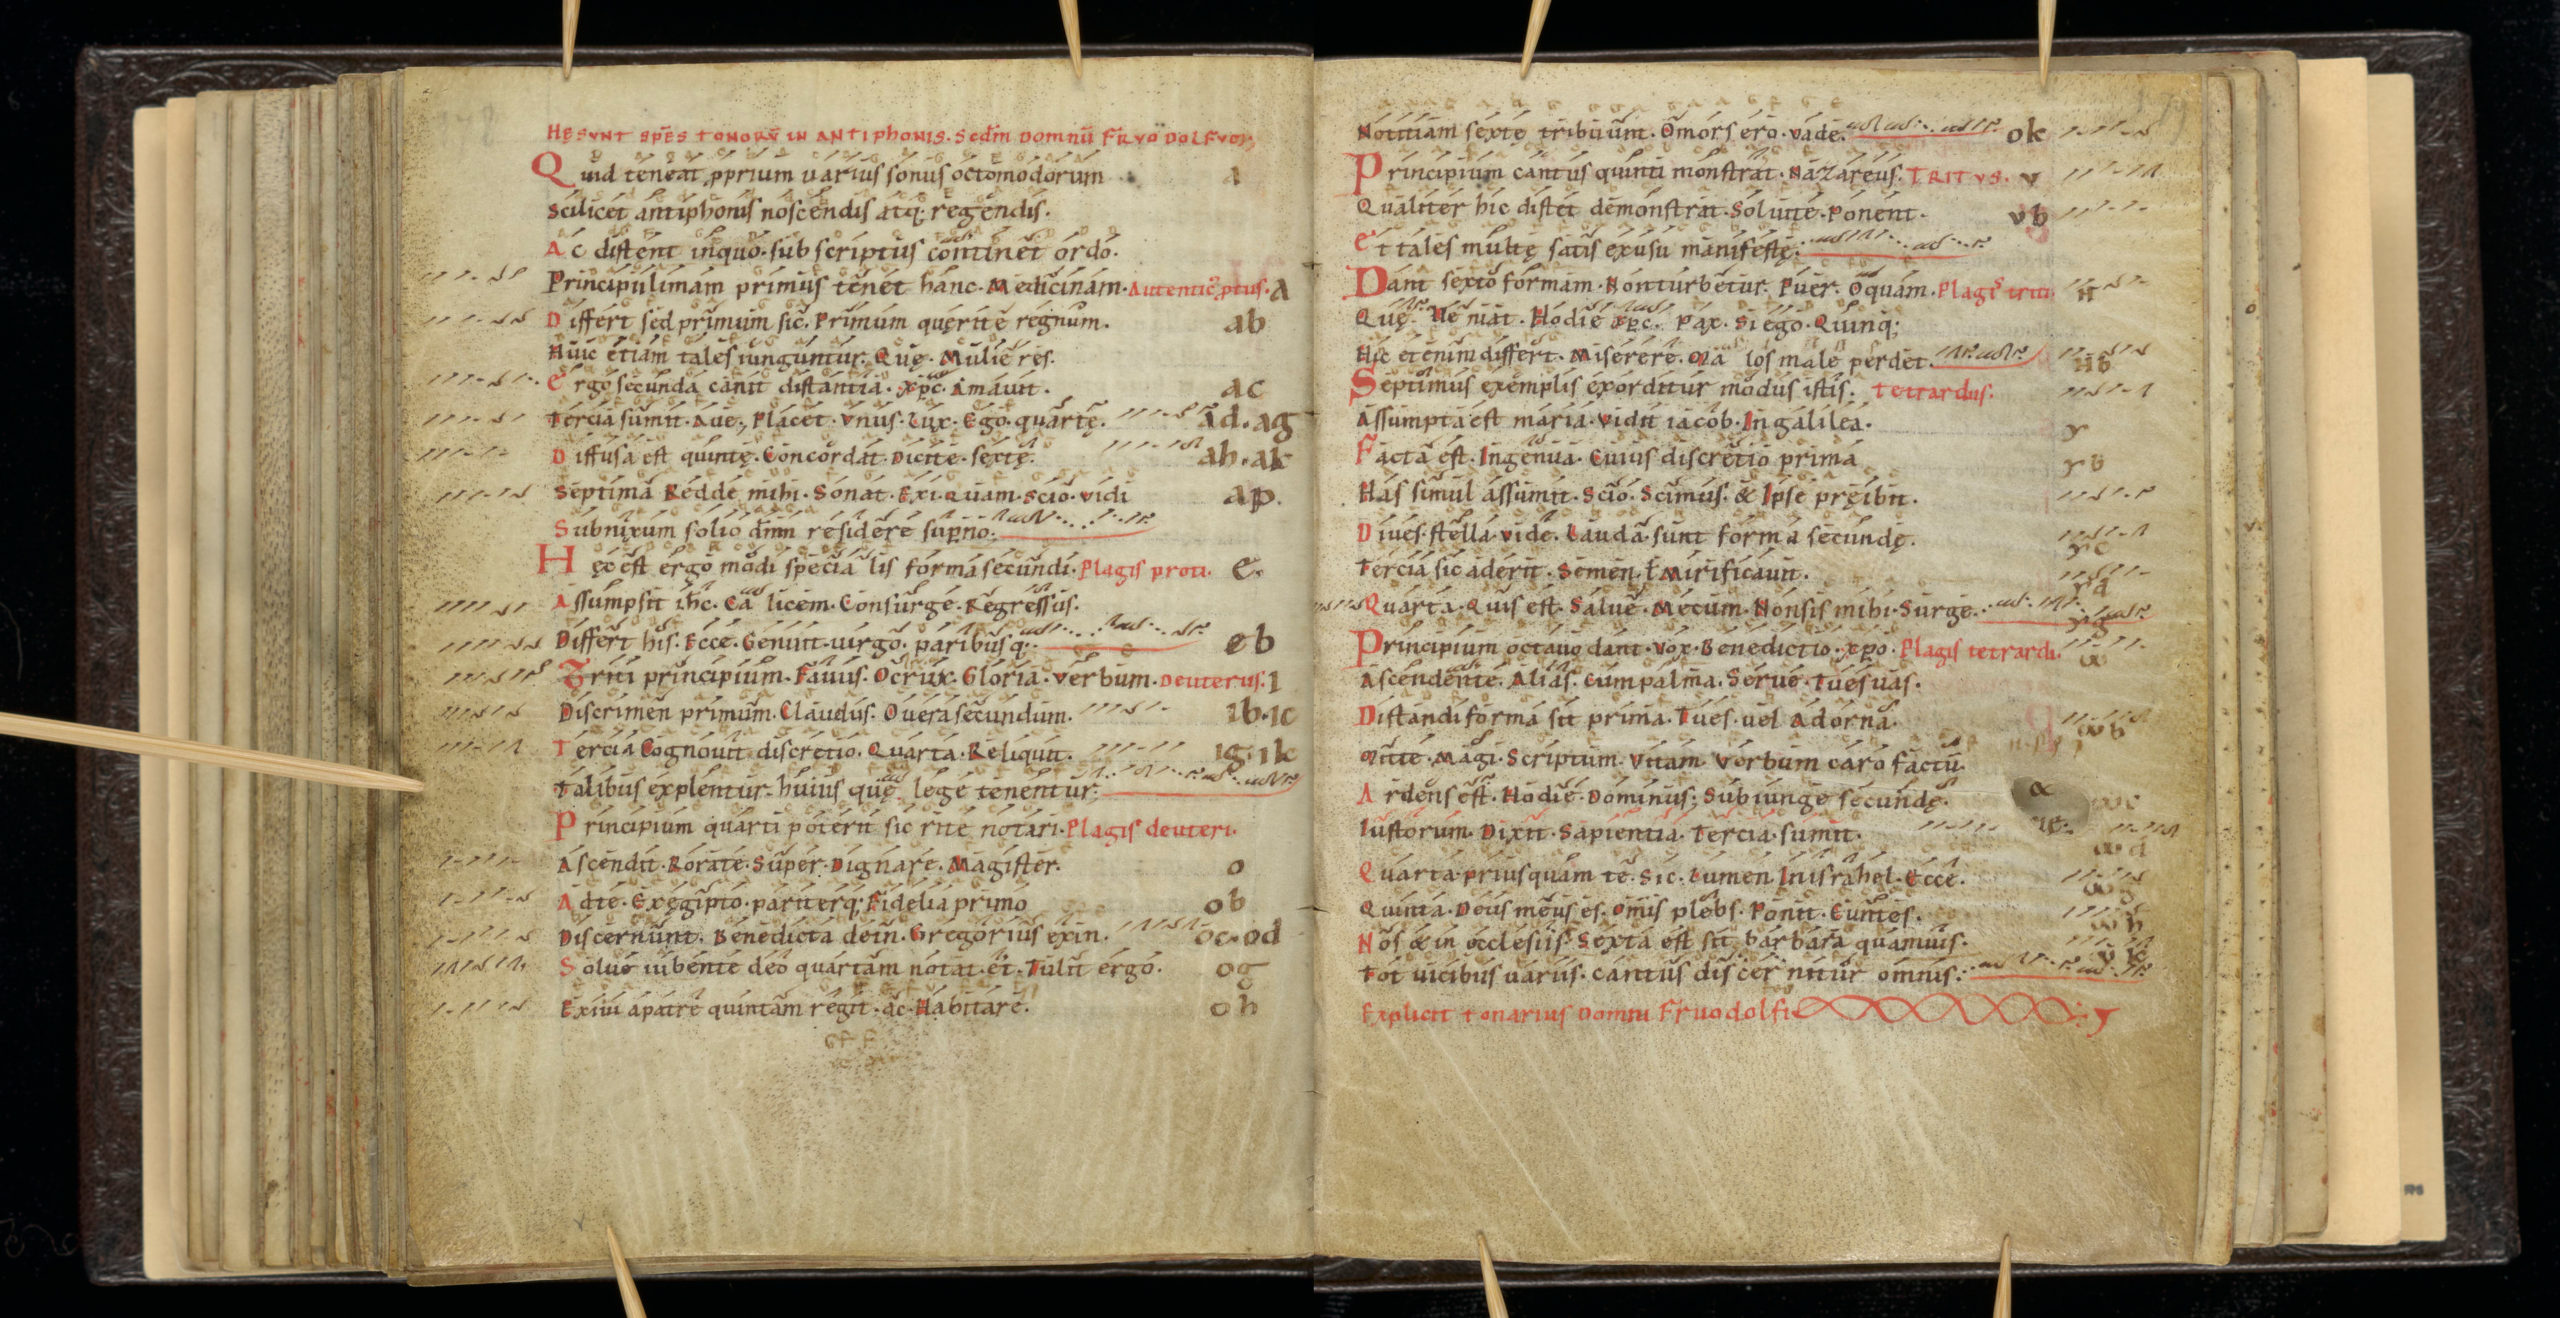 HĘ SVNT SPĒS TONORV̄ IN ANTIPHONIS. Scdm DOMNŪ FRVODOLFVM
Quid teneat ꝓprium uarius sonus octo modorum a
Scilicet antiphonis noscendis atq; regendis.
Ac distent in quo. sub scriptus continet ordo.
Principii limam primus tenet hanc. Medicinam. Autentic' ꝓtus. a
Differt sed primum sic. Primum querite regnum. ab
Huic etiam tales iunguntur. Quę. Mulieres.
Ergo secunda canit distantia. xpc. Amauit. ac
Tercia sumit. Aue. Placet. Vnus. Lux. Ego. quartę. ad. ag
Diffusa est quintę. Concordat. Dicite. sextę. ah. ak
Septima Redde mihi. Sonat. Exi. Quam. Scio. vidi ap.
Subnixum solio dnm residere supno.
Hęc est ergo modi specialis forma secundi. Plagis proti. e.
Assumpsit ihc. Calicem. Consurge. Regressus.
Differt his. Ecce. Genuit. uirgo. paribusq; eb
Triti principium. Fauus. O crux. Gloria. Verbum. Deuterus. 1
Discrimen primum. Claudus. O uera secundum. ib. ic
Tercia Cognouit discretio. Quarta. Reliquit. ig. ik
Talibus explentur. huius quę lege tenentur.
Principium quarti poterit sic rite notari. Plagis deuteri.
Ascendit. Rorate. Super. Dignare. Magister. o
Ad te. Ex ęgipto. pariterq; Fidelia primo ob
Discernunt. Benedicta dein. Gregorius exin. oc. od
Solue iubente deo quartam notat. et. Tulit ergo. og
Exiui a patre quintam regit. ac. Habitare. oh
Notitiam sextę tribuunt. O mors ero. vade. ok
Principium cantus quinti monstrat. Nazareus. TRITVS. v
Qualiter hic distet demonstrat. Soluite. Ponent. vb
Et tales multę satis ex usu manifestę.
Dant sexto formam. Non turbetur. Puer. O quam. Plagis triti H
Quę. Veniat. Hodie xpc. Pax. Si ego. Quinq;
Hic etenim differt. Miserere. Malos male perdet. Hb
Septimus exemplis exorditur modus istis. Tetrardus.
Assumpta est maria. Vidit iacob. In galilea. y
Facta est. Ingenua. Cuius discretio prima yb
Has simul assumit. Scio. Scimus. & Ipse pręibit.
Diues. stella. vide. Lauda. sunt forma secundę. yc
Tercia sic aderit. Semen. t Mirificauit. yd
Quarta. Quis est. Salue. Mecum. Non sis mihi. Surge. yg
Principium octauo dant. Vox. Benedictio. xpo. Plagis tetrardi.
Ascendente. Alias. Cum palma. Serue. Tu es uas.
Distandi forma sit prima. Tu es. uel Adorna.
Mitte. Magi. Scriptum. Vitam. Verbum caro factū
Ardens est. Hodie. Dominus. Subiunge secundę.
Iustorum. Dixit. Sapientia. Tercia. sumit.
Quarta. priusquam te. Sic. Lumen. In isrāhel. Ecce.
Quinta. Deus meus es. Omis plebs. Ponit. Euntes.
Nos & in ęcclesiis. Sexta est sit barbara quamuis.
Tot uicibus uariis. cantus discernitur omnis.
Explicit tonarius Domni Fruodolfi